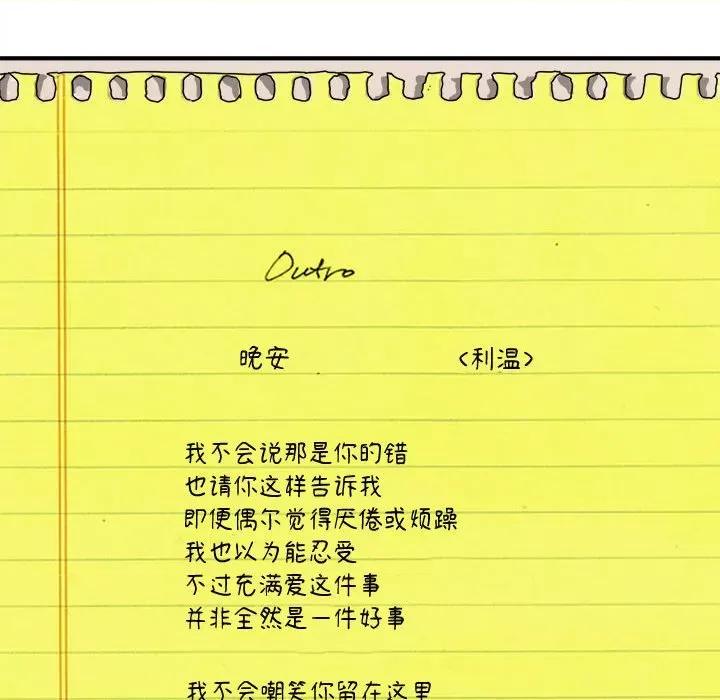 Outro
晚安 <利温>
我不会说那是你的错
也请你这样告诉我
即便偶尔觉得厌倦或烦躁
我也以为能忍受
不过充满爱这件事
并非全然是一件好事
我不会嘲笑你留在这里